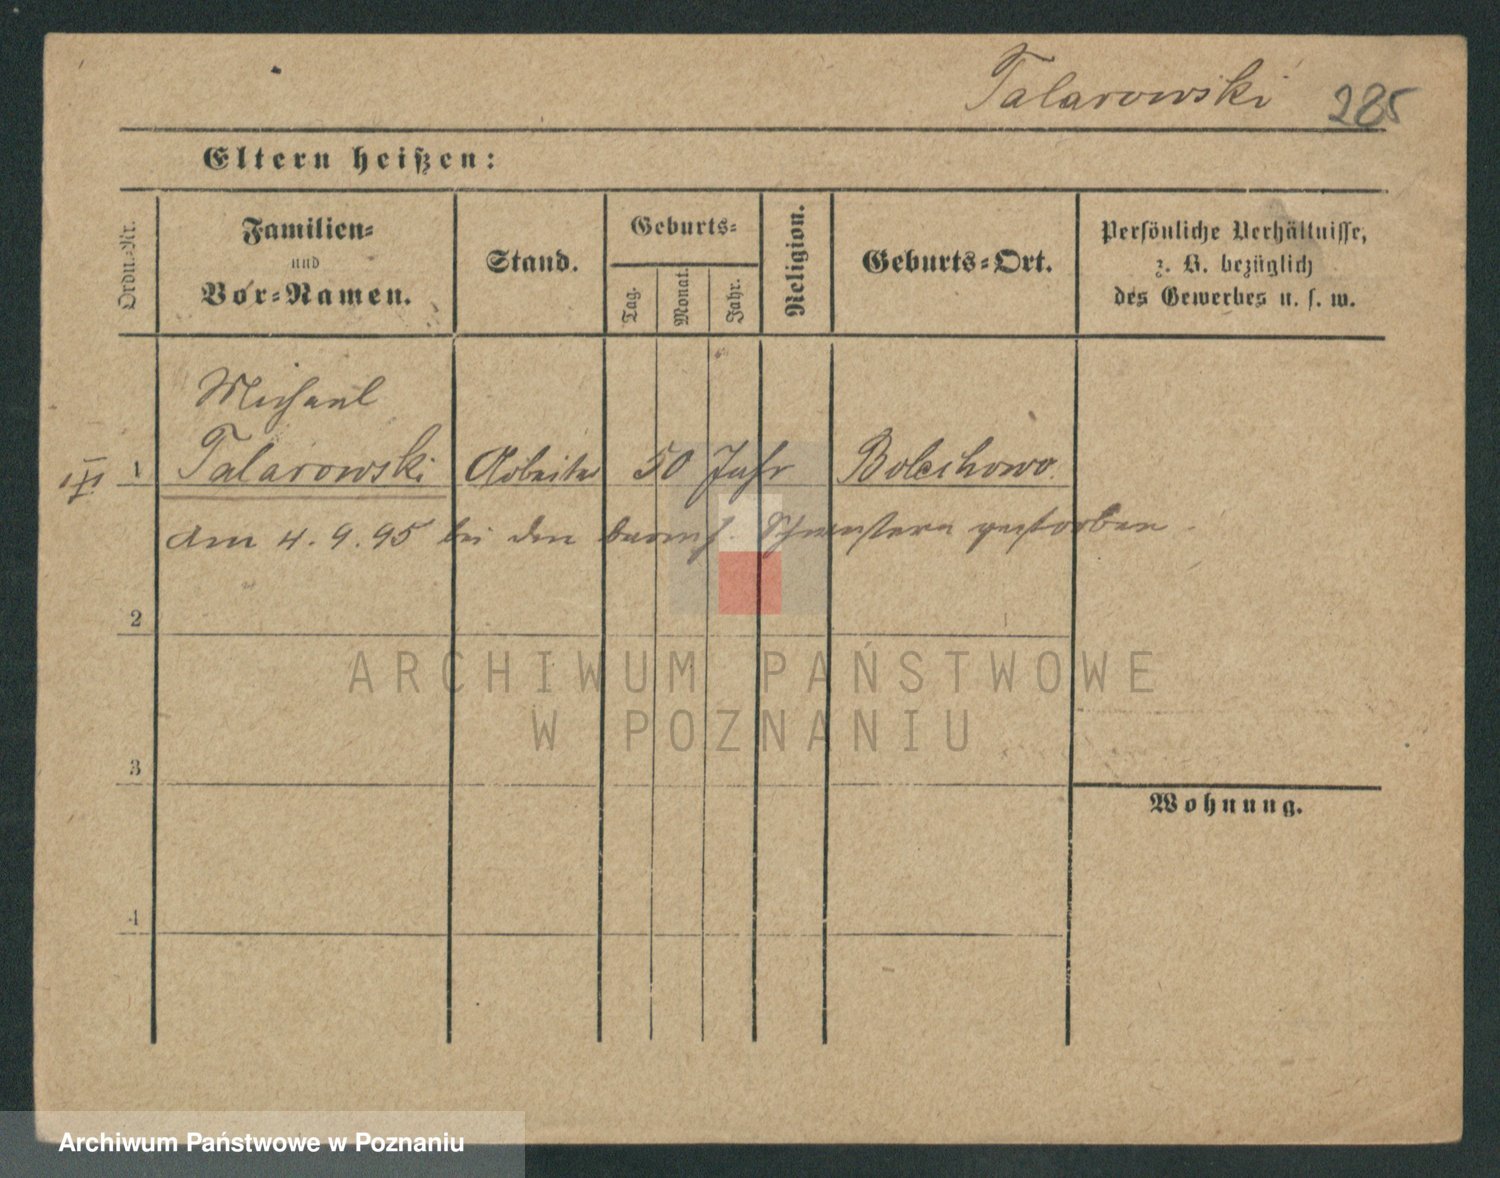 Talarowski 285
Eltern heißen:
Ordn.-Nr.
Familien-
und
Vor-Namen.
Stand.
Geburts-
Tag.
Monat.
Jahr.
Religion.
Geburts-Ort.
Persönliche Verhältnisse,
z. B. bezüglich
des Gewerbes u. s. w.
Michael
1 Talarowski Arbeiter 50 Jahr Bolechowo.
am 4. 9. 95 bei den barmh. Schwestern gestorben.
2
ARCHIWUM PAŃSTWOWE
W POZNANIU
3
Wohnung.
4
Archiwum Państwowe w Poznaniu